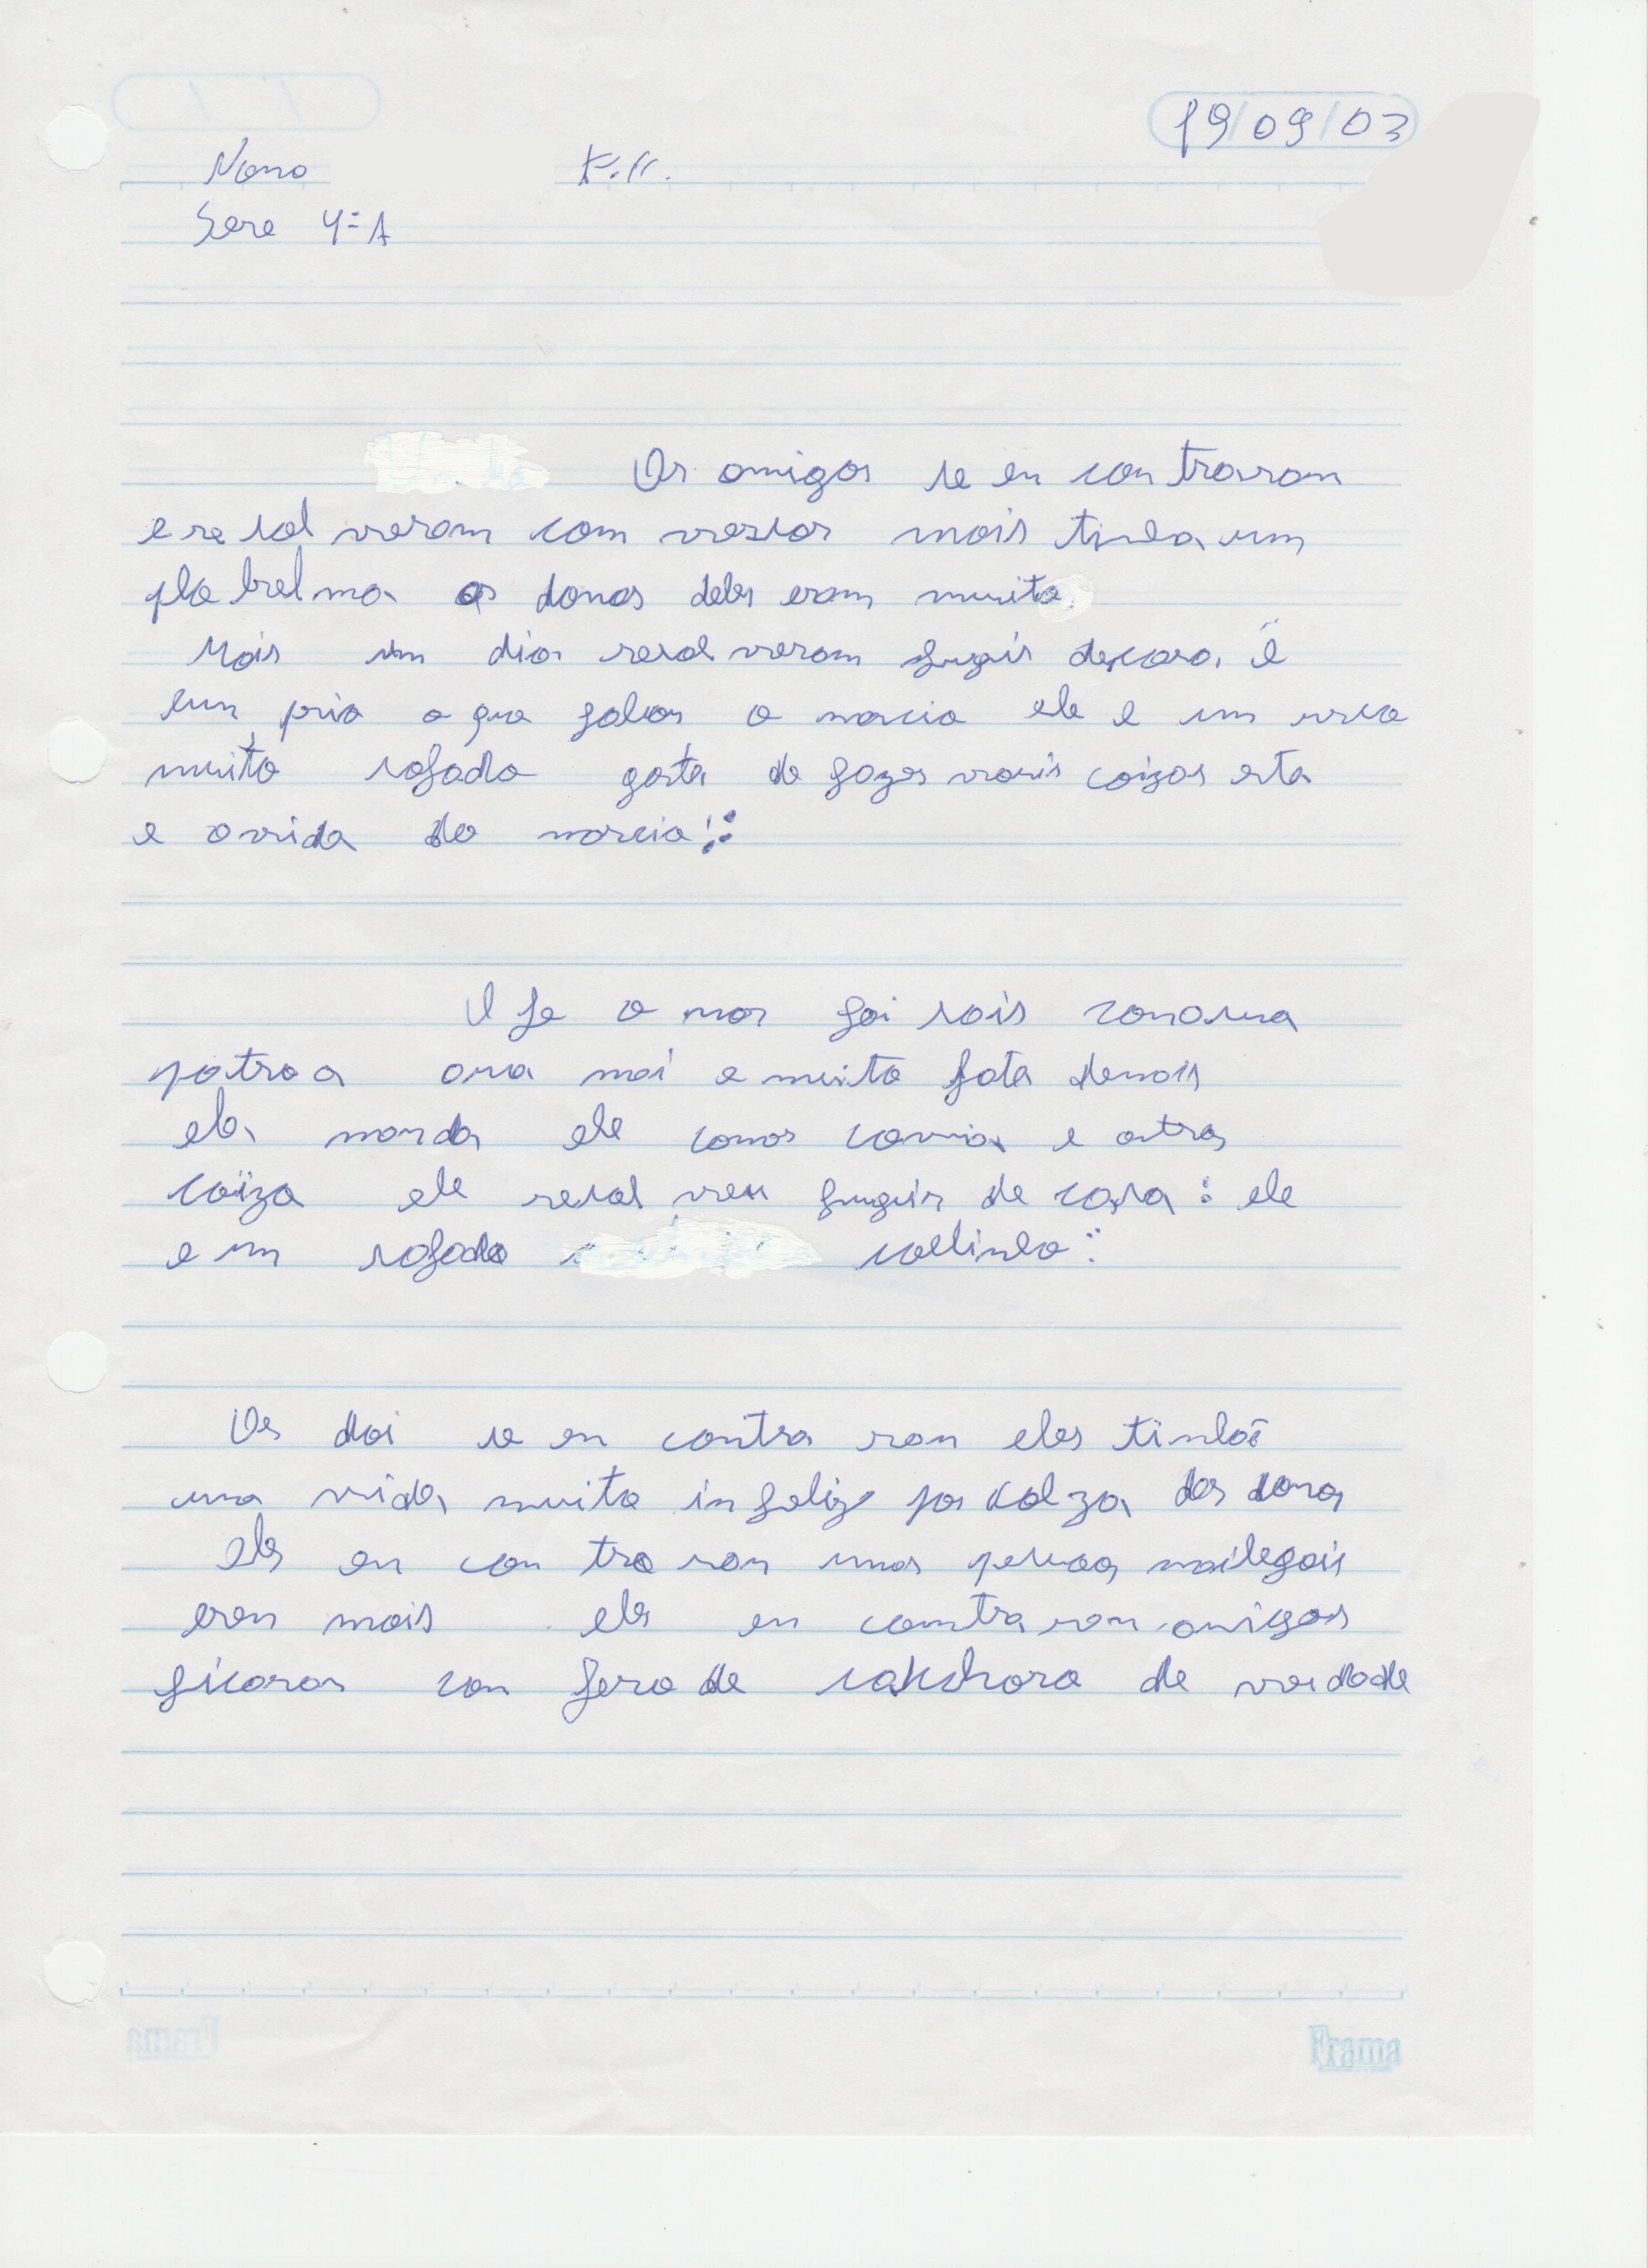 19/09/03
Nono K.K.
Sere 4ª A
Os amigos se en con traram
e re sol veram com versar mais tinha um
plo brelma os donos deles eram muito
Mais um dia resol veram fugir decasa. É
muito safado gosta de fazer varis coizas esta
e a vida do marcio
foi sois
patroa mai e muito fata demois
ela manda ele e outras
coiza ele resol veu fuguir de casa: ele
e um safado collinho:
Os doi se en contra ram eles tinhão
uma vida muito in feliz por calza dos donos
eles en con tra ram umas pesoas mailegais
eren mais eles en contra ram amigos
ficaran con fero de cakchoro de verdade
Frama